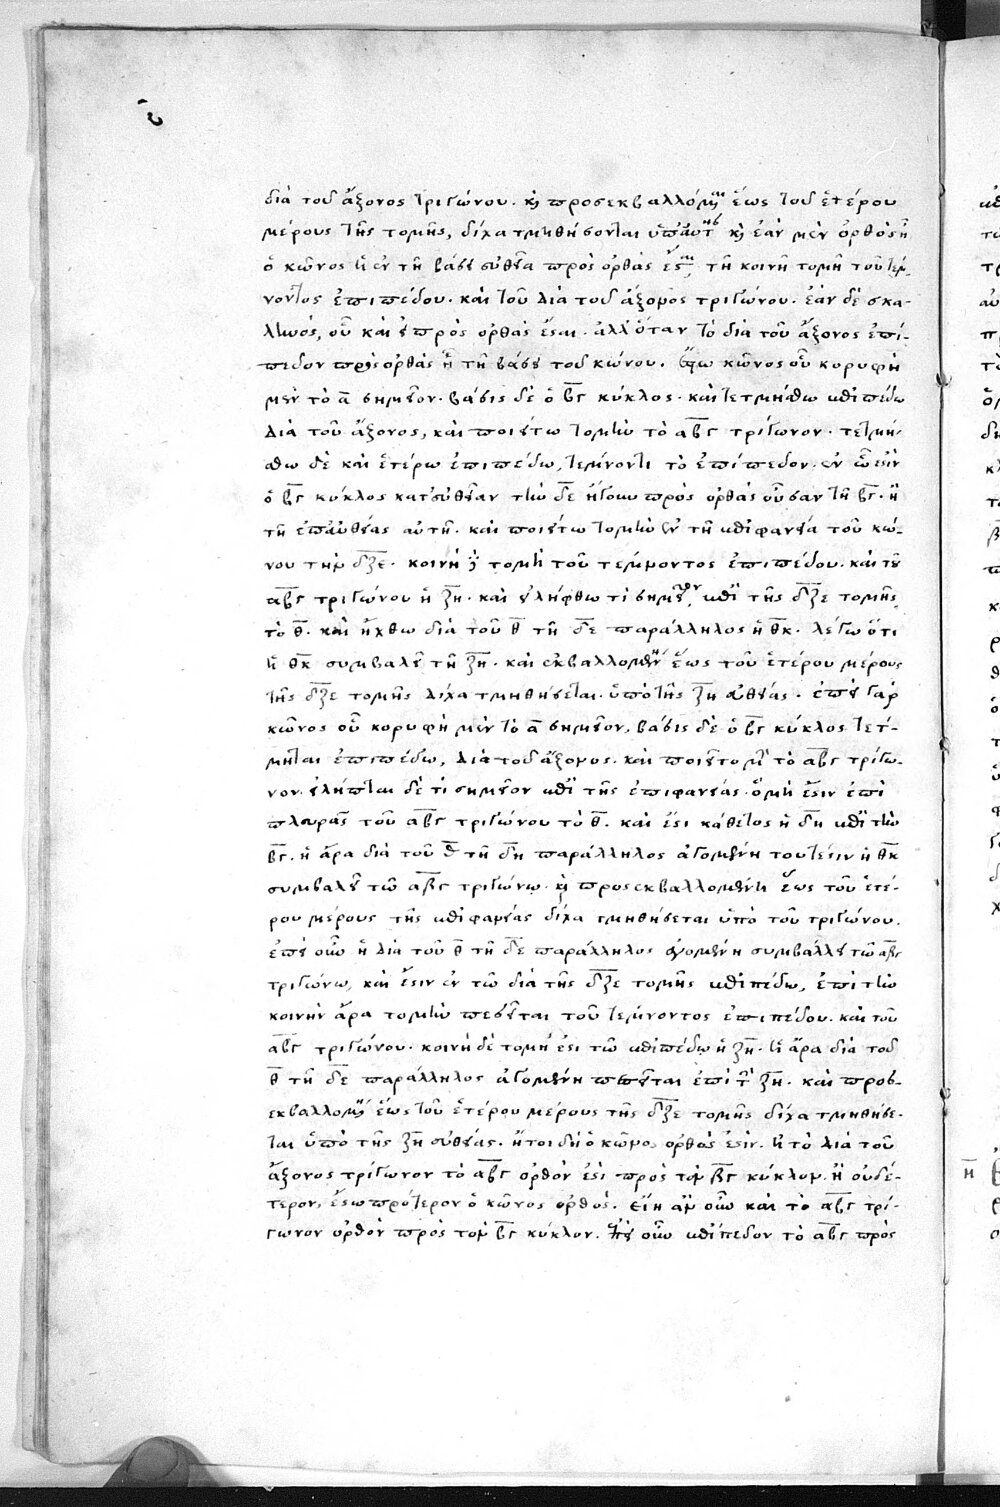 ς
διὰ τοῦ ἄξονος τριγώνου. καὶ προσεκβαλλόμεναι ἕως τοῦ ἑτέρου
μέρους τῆς τομῆς, δίχα τμηθήσονται ὑπ' αὐτῆς καὶ ἐὰν μὲν ὀρθὸς ᾖ
ὁ κῶνος ἡ ἐν τῇ βάσει εὐθεῖα πρὸς ὀρθὰς ἔσται τῇ κοινῇ τομῇ τοῦ τέμ-
νοντος ἐπιπέδου. καὶ τοῦ διὰ τοῦ ἄξονος τριγώνου. ἐὰν δὲ σκα-
ληνός, οὐ καὶ εἰ πρὸς ὀρθὰς ἔσται. ἀλλ' ὅταν τὸ διὰ τοῦ ἄξονος ἐπί-
πεδον πρὸς ὀρθὰς ᾖ τῇ βάσει τοῦ κώνου. ἔστω κῶνος οὗ κορυφὴ
μὲν τὸ α σημεῖον. βάσις δὲ ὁ βγ κύκλος. καὶ τετμήσθω ἐπιπέδω
διὰ τοῦ ἄξονος, καὶ ποιείτω τομὴν τὸ αβγ τρίγωνον. τετμή-
σθω δὲ καὶ ἑτέρω ἐπιπέδω, τέμνοντι τὸ ἐπίπεδον. ἐν ὧ ἐστὶν
ὁ βγ κύκλος κατ' εὐθεῖαν τὴν δε ἤτοι πρὸς ὀρθὰς οὖσαν τῇ βγ. ἢ
τῇ ἐπ' εὐθείας αὐτῇ. καὶ ποιείτω τομὴν ἐν τῇ ἐπιφανεία τοῦ κώ-
νου τὴν δζε. κοινὴ δὲ τομὴ τοῦ τέμνοντος ἐπιπέδου. καὶ τοῦ
αβγ τριγώνου ἡ ζη. καὶ εἰλήφθω τι σημεῖον ἐπὶ τῆς δζε τομῆς
τὸ θ. καὶ ἤχθω διὰ τοῦ θ τῇ δε παράλληλος ἡ θκ. λέγω ὅτι
ἡ θκ συμβαλεῖ τῇ ζη. καὶ ἐκβαλλομένη ἕως τοῦ ἑτέρου μέρους
τῆς δζε τομῆς δίχα τμηθήσεται. ὑπὸ τῆς ζη εὐθείας. ἐπεὶ γὰρ
κῶνος οὗ κορυφὴ μὲν τὸ α σημεῖον, βάσις δὲ ὁ βγ κύκλος τέτ-
μηται ἐπιπέδω, διὰ τοῦ ἄξονος. καὶ ποιεῖ τομὴν τὸ αβγ τρίγω-
νον. εἴληπται δέ τι σημεῖον ἐπὶ τῆς ἐπιφανείας. ὃ μή ἐστιν ἐπὶ
πλευρᾶς τοῦ αβγ τριγώνου τὸ θ. καὶ ἔστι κάθετος ἡ δη ἐπὶ τὴν
βγ. ἡ ἄρα διὰ τοῦ θ τῇ δη παράλληλος ἀγομένη τουτέστιν ἡ θκ
συμβαλεῖ τῶ αβγ τριγώνω. καὶ προσεκβαλλομένη ἕως τοῦ ἑτέ-
ρου μέρους τῆς ἐπιφανείας δίχα τμηθήσεται ὑπὸ τοῦ τριγώνου.
ἐπεὶ οὖν ἡ διὰ τοῦ θ τῇ δε παράλληλος ἀγομένη συμβάλλει τῶ αβγ
τριγώνω, καὶ ἔστιν ἐν τῶ διὰ τῆς δζε τομῆς ἐπιπέδω, ἐπὶ τὴν
κοινὴν ἄρα τομὴν πεσεῖται τοῦ τέμνοντος ἐπιπέδου. καὶ τοῦ
αβγ τριγώνου. κοινὴ δὲ τομή ἐστι τῶ ἐπιπέδω ἡ ζη. ἡ ἄρα διὰ τοῦ
θ τῇ δε παράλληλος ἀγομένη πεσεῖται ἐπὶ τὴν ζη. καὶ προσ-
εκβαλλομένη ἕως τοῦ ἑτέρου μέρους τῆς δζε τομῆς δίχα τμηθήσε-
ται ὑπὸ τῆς ζη εὐθείας. ἤτοι δὴ ὁ κῶνος ὀρθός ἐστιν. ἢ τὸ διὰ τοῦ
ἄξονος τρίγωνον τὸ αβγ ὀρθόν ἐστι πρὸς τὸν βγ κύκλον. ἢ οὐδέ-
τερον, ἔστω πρότερον ὁ κῶνος ὀρθός. εἴη ἂν οὖν καὶ τὸ αβγ τρί-
γωνον ὀρθὸν πρὸς τὸν βγ κύκλον. ἐπεὶ οὖν ἐπίπεδον τὸ αβγ πρὸς